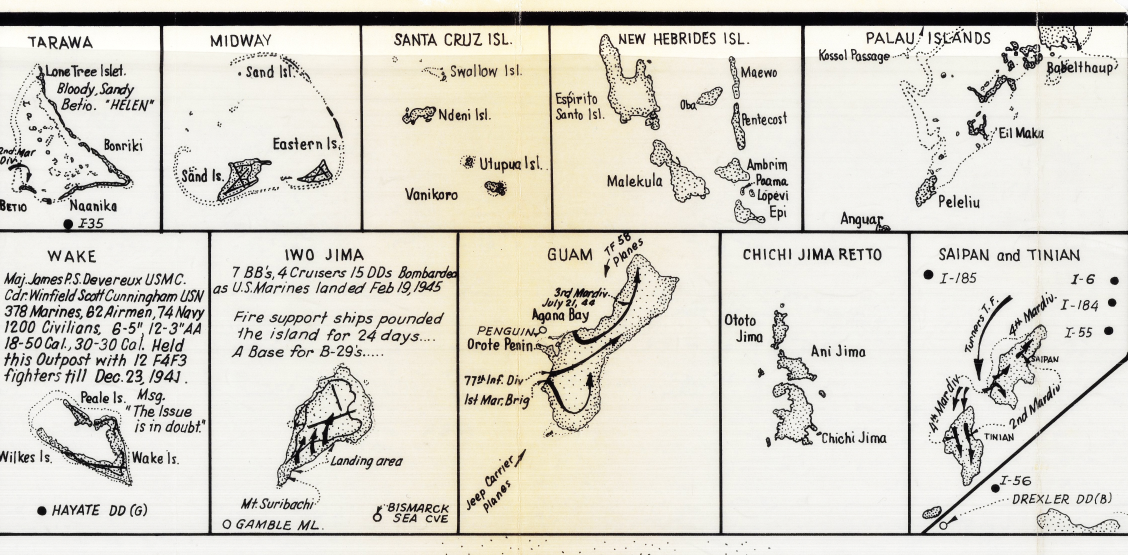 TARAWA
Lone Tree Islet.
Bloody, Sandy
Betio. "HELEN"
Bonriki
2nd Mar
Div.
BETIO
Naanika
I-35
MIDWAY
Sand Isl.
Eastern Is.
Sand Is.
SANTA CRUZ ISL.
Swallow Isl.
Ndeni Isl.
Utupua Isl.
Vanikoro
NEW HEBRIDES ISL.
Espirito
Santo Isl.
Maewo
Oba
Pentecost
Malekula
Ambrim
Paama
Lopevi
Epi
PALAU ISLANDS
Kossol Passage
Babelthaup
Eil Maku
Peleliu
Anguar
WAKE
Maj. James P.S. Devereux USMC.
Cdr. Winfield Scott Cunningham USN
378 Marines, 62 Airmen, 74 Navy
1200 Civilians, 6-5", 12-3"AA
18-50 Cal., 30-30 Cal. Held
this Outpost with 12 F4F3
fighters till Dec. 23, 1941.
Peale Is.
Msg.
"The Issue
is in doubt."
Wilkes Is.
Wake Is.
HAYATE DD (G)
IWO JIMA
7 BB's, 4 Cruisers 15 DDs Bombarded
as U.S. Marines landed Feb 19, 1945
Fire support ships pounded
the island for 24 days....
A Base for B-29's.....
Landing area
Mt. Suribachi
GAMBLE ML.
BISMARCK
SEA CVE
GUAM
TF 58
Planes
3rd Mardiv.
July 21, 44
Agana Bay
PENGUIN
Orote Penin.
77th Inf. Div
1st Mar. Brig
Jeep Carrier
Planes
CHICHI JIMA RETTO
Ototo
Jima
Ani Jima
Chichi Jima
SAIPAN and TINIAN
I-185
I-6
I-184
I-55
Turners T.F.
4th Mardiv.
SAIPAN
4th Mardiv
2nd Mardiv.
TINIAN
I-56
DREXLER DD(B)